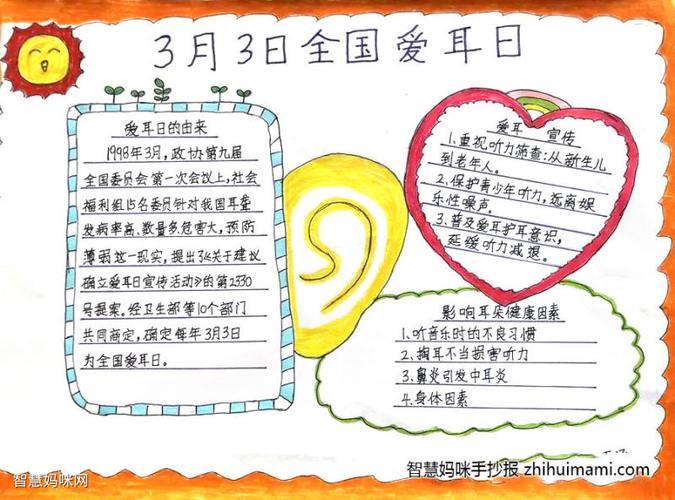 3月3日全国爱耳日
爱耳日的由来
1998年3月,政协第九届
全国委员会第一次会议上,社会
福利组15名委员针对我国耳聋
发病率高、数量多危害大,预防
薄弱这一现实,提出了《关于建议
确立爱耳日宣传活动》的第2330
号提案。经卫生部等10个部门
共同商定,确定每年3月3日
为全国爱耳日。
爱耳 宣传
1.重视听力筛查:从新生儿
到老年人。
2.保护青少年听力,远离娱
乐性噪声。
3.普及爱耳护耳意识,
延缓听力减退。
影响耳朵健康因素
1、听音乐时的不良习惯
2、掏耳不当损害听力
3.鼻炎引发中耳炎
4.身体因素
智慧妈咪手抄报 zhihuimami.com
智慧妈咪网